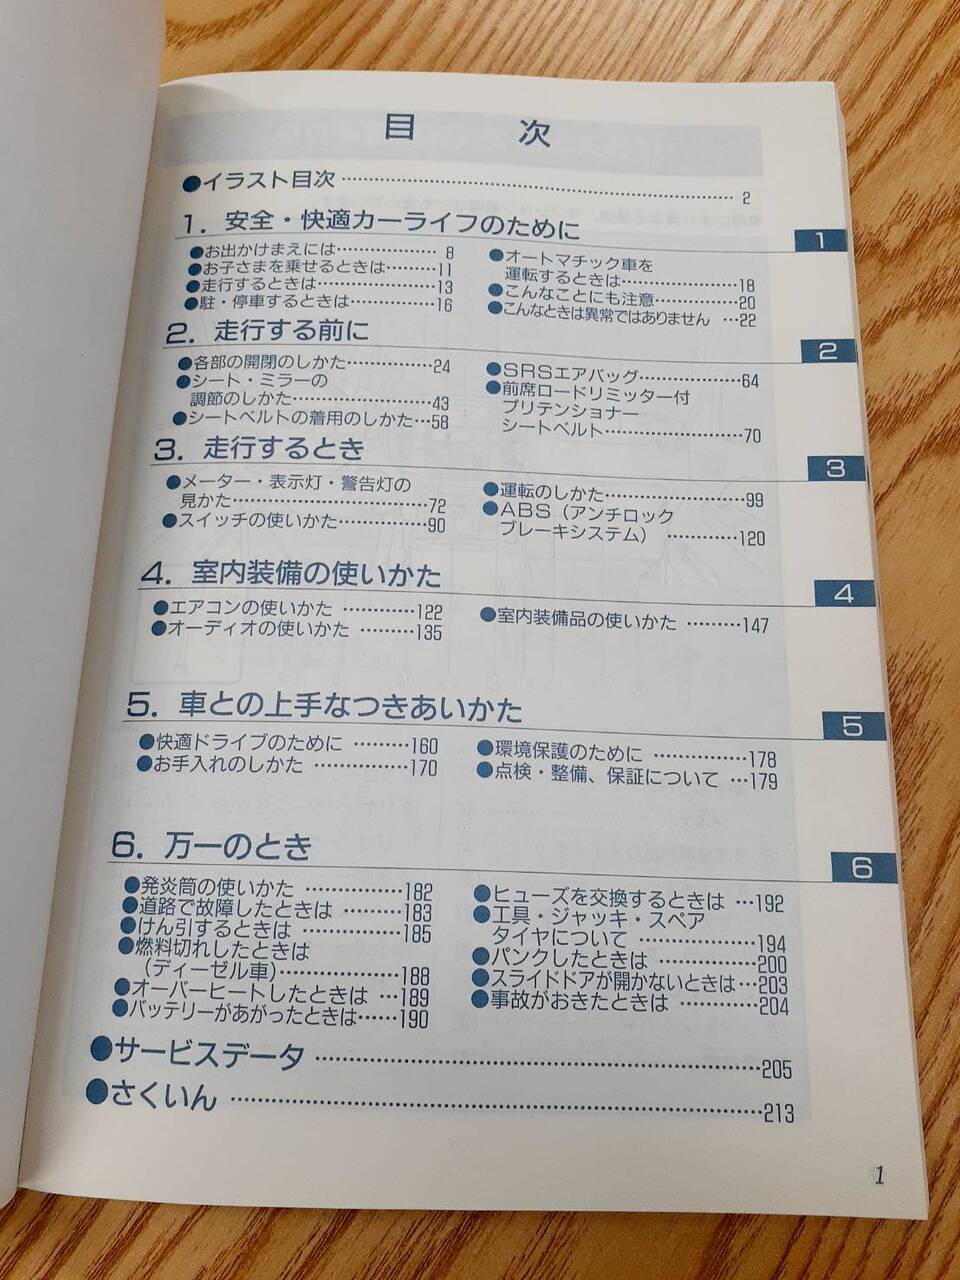 目 次
●イラスト目次……2
1. 安全・快適カーライフのために
1
●お出かけまえには……8
●お子さまを乗せるときは……11
●走行するときは……13
●駐・停車するときは……16
●オートマチック車を
運転するときは……18
●こんなことにも注意……20
●こんなときは異常ではありません…22
2. 走行する前に
2
●各部の開閉のしかた……24
●シート・ミラーの
調節のしかた……43
●シートベルトの着用のしかた…58
●SRSエアバッグ……64
●前席ロードリミッター付
プリテンショナー
シートベルト……70
3. 走行するとき
3
●メーター・表示灯・警告灯の
見かた……72
●スイッチの使いかた……90
●運転のしかた……99
●ABS(アンチロック
ブレーキシステム)……120
4. 室内装備の使いかた
4
●エアコンの使いかた……122
●オーディオの使いかた……135
●室内装備品の使いかた……147
5. 車との上手なつきあいかた
5
●快適ドライブのために……160
●お手入れのしかた……170
●環境保護のために……178
●点検・整備、保証について…179
6. 万一のとき
6
●発炎筒の使いかた……182
●道路で故障したときは……183
●けん引するときは……185
●燃料切れしたときは
(ディーゼル車)……188
●オーバーヒートしたときは…189
●バッテリーがあがったときは……190
●ヒューズを交換するときは…192
●工具・ジャッキ・スペア
タイヤについて……194
●パンクしたときは……200
●スライドドアが開かないときは…203
●事故がおきたときは……204
●サービスデータ……205
●さくいん……213
1